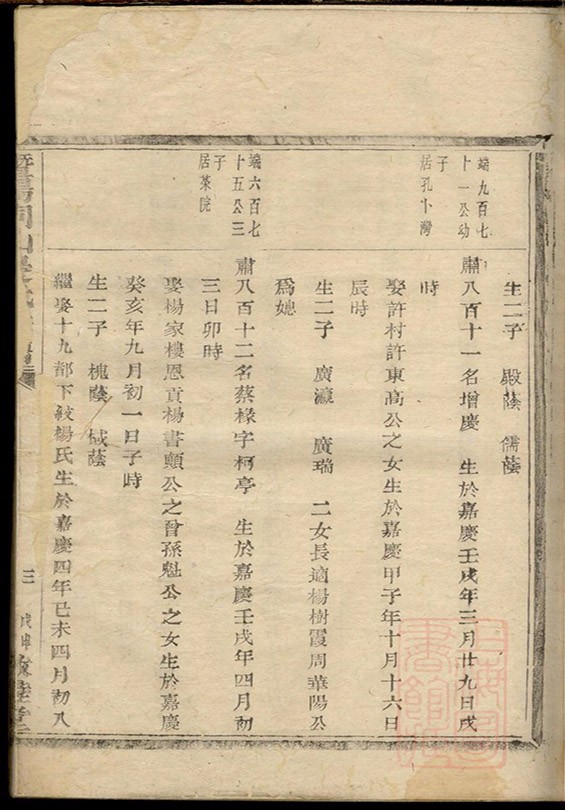 生二子 殿蔭 儒蔭
端九百七
十一公幼
子
居孔卜灣
肅八百十一名增慶 生於嘉慶壬戌年三月廿九日戌
時
娶許村許東高公之女生於嘉慶甲子年十月十六日
辰時
生二子 廣瀛 廣瑞 二女長適楊樹霞周華陽公
為媳
端六百七
十五公三
子
居菜院
肅八百十二名蔡椽字柯亭 生於嘉慶壬戌年四月初
三日卯時
娶楊家樓恩貢楊書顛公之曾孫魁公之女生於嘉慶
癸亥年九月初一日子時
生二子 槐蔭 棫蔭
繼娶十九都下紋楊氏生於嘉慶四年己未四月初八
暨陽同山
三
戊申
睦堂
上海圖
書館